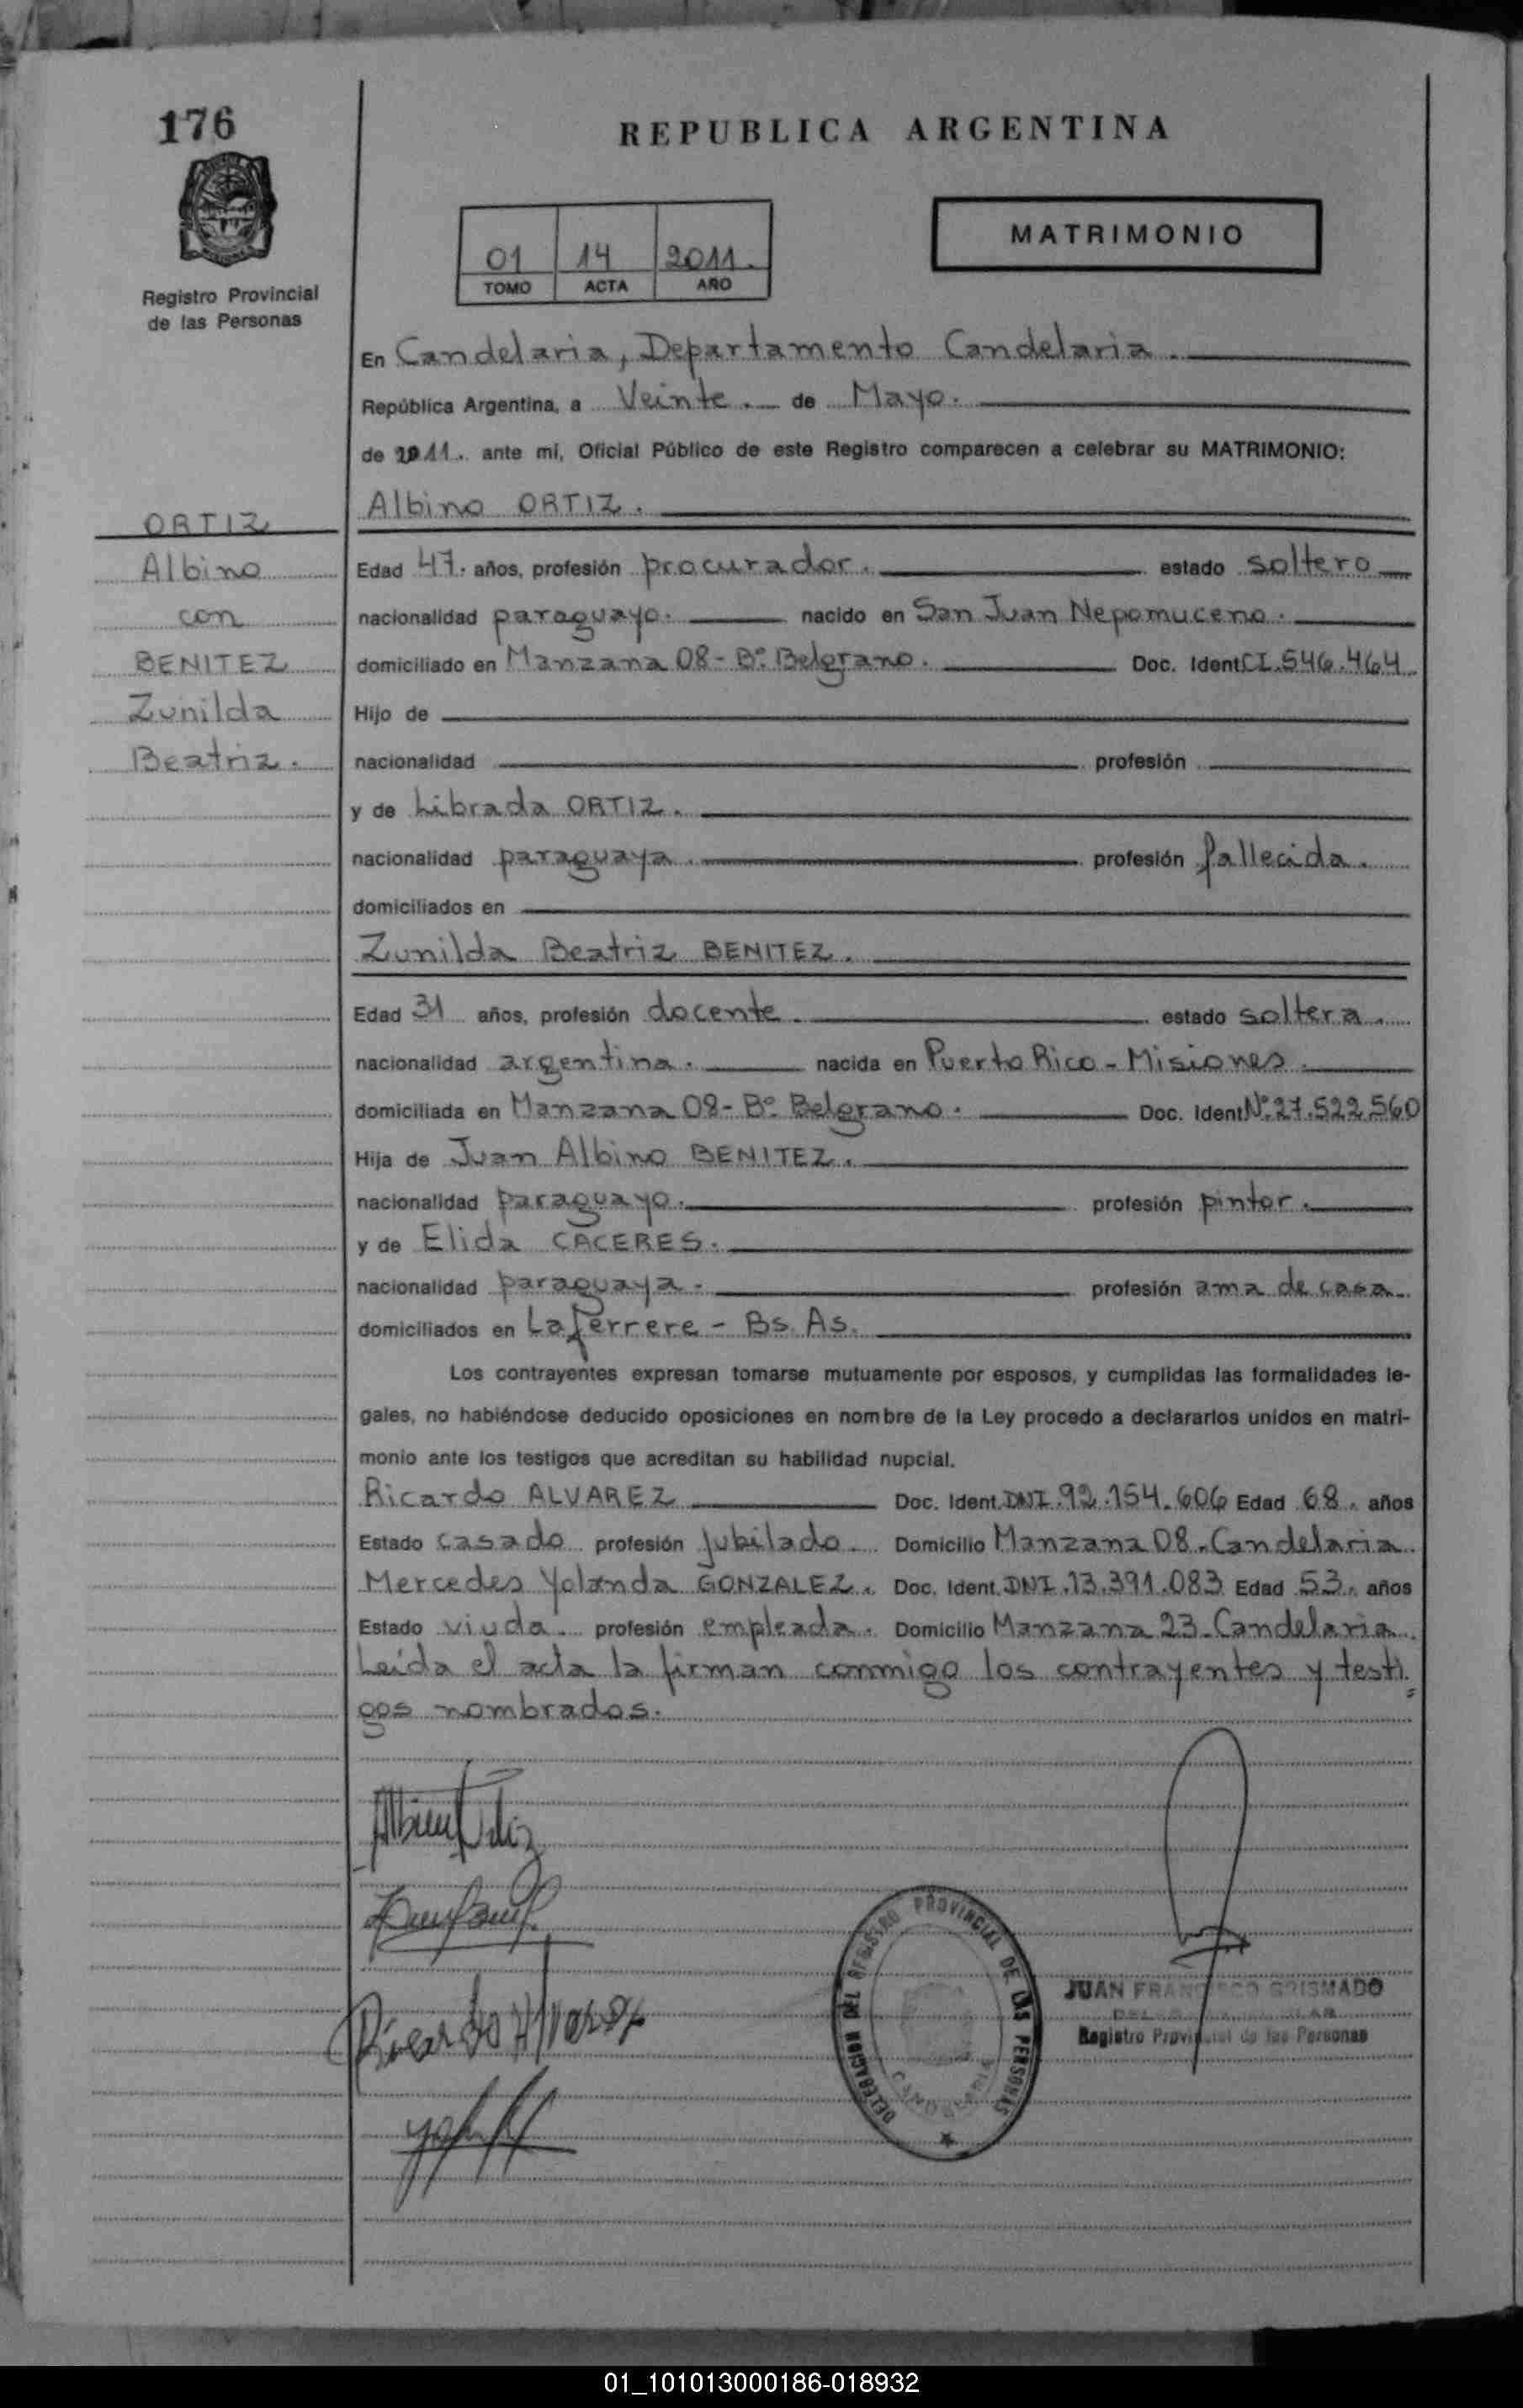 176
REPUBLICA ARGENTINA
Registro Provincial
de las Personas
01 14 2011.
TOMO ACTA AÑO
MATRIMONIO
En Candelaria, Departamento Candelaria.
República Argentina, a Veinte. de Mayo.
de 2011. ante mí, Oficial Público de este Registro comparecen a celebrar su MATRIMONIO:
ORTIZ
Albino
con
BENITEZ
Zunilda
Beatriz.
Albino ORTIZ.
Edad 47. años, profesión procurador. estado soltero
nacionalidad paraguayo. nacido en San Juan Nepomuceno.
domiciliado en Manzana 08- Bº Belgrano. Doc. Ident CI.546.464
Hijo de
nacionalidad profesión
y de Librada ORTIZ.
nacionalidad paraguaya. profesión fallecida.
domiciliados en
Zunilda Beatriz BENITEZ.
Edad 31 años, profesión docente. estado soltera.
nacionalidad argentina. nacida en Puerto Rico - Misiones.
domiciliada en Manzana 08- Bº Belgrano. Doc. Ident Nº.27.522.560
Hija de Juan Albino BENITEZ.
nacionalidad paraguayo. profesión pintor.
y de Elida CACERES.
nacionalidad paraguaya. profesión ama de casa.
domiciliados en Laferrere - Bs. As.
Los contrayentes expresan tomarse mutuamente por esposos, y cumplidas las formalidades le-
gales, no habiéndose deducido oposiciones en nombre de la Ley procedo a declararlos unidos en matri-
monio ante los testigos que acreditan su habilidad nupcial.
Ricardo ALVAREZ Doc. Ident. DNI.92.154.606 Edad 68. años
Estado casado profesión jubilado. Domicilio Manzana 08-Candelaria.
Mercedes Yolanda GONZALEZ. Doc. Ident. DNI.13.391.083 Edad 53. años
Estado viuda. profesión empleada. Domicilio Manzana 23-Candelaria.
Leída el acta la firman conmigo los contrayentes y testi=
gos nombrados.
Ricardo Alvarez
DELEGACION DEL REGISTRO PROVINCIAL DE LAS PERSONAS
CANDELARIA
JUAN FRANCISCO GRISMADO
Registro Provincial de las Personas
01_101013000186-018932